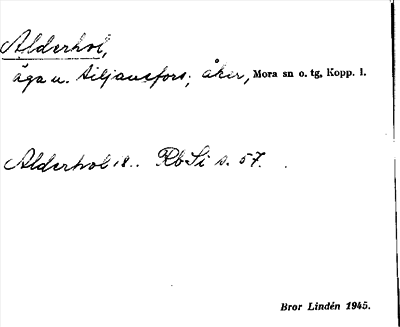 Alderhol,
äga u. Siljansfors; åker, Mora sn o. tg, Kopp. l.
Alderhol 18.. RbSi s. 57.
Bror Lindén 1945.